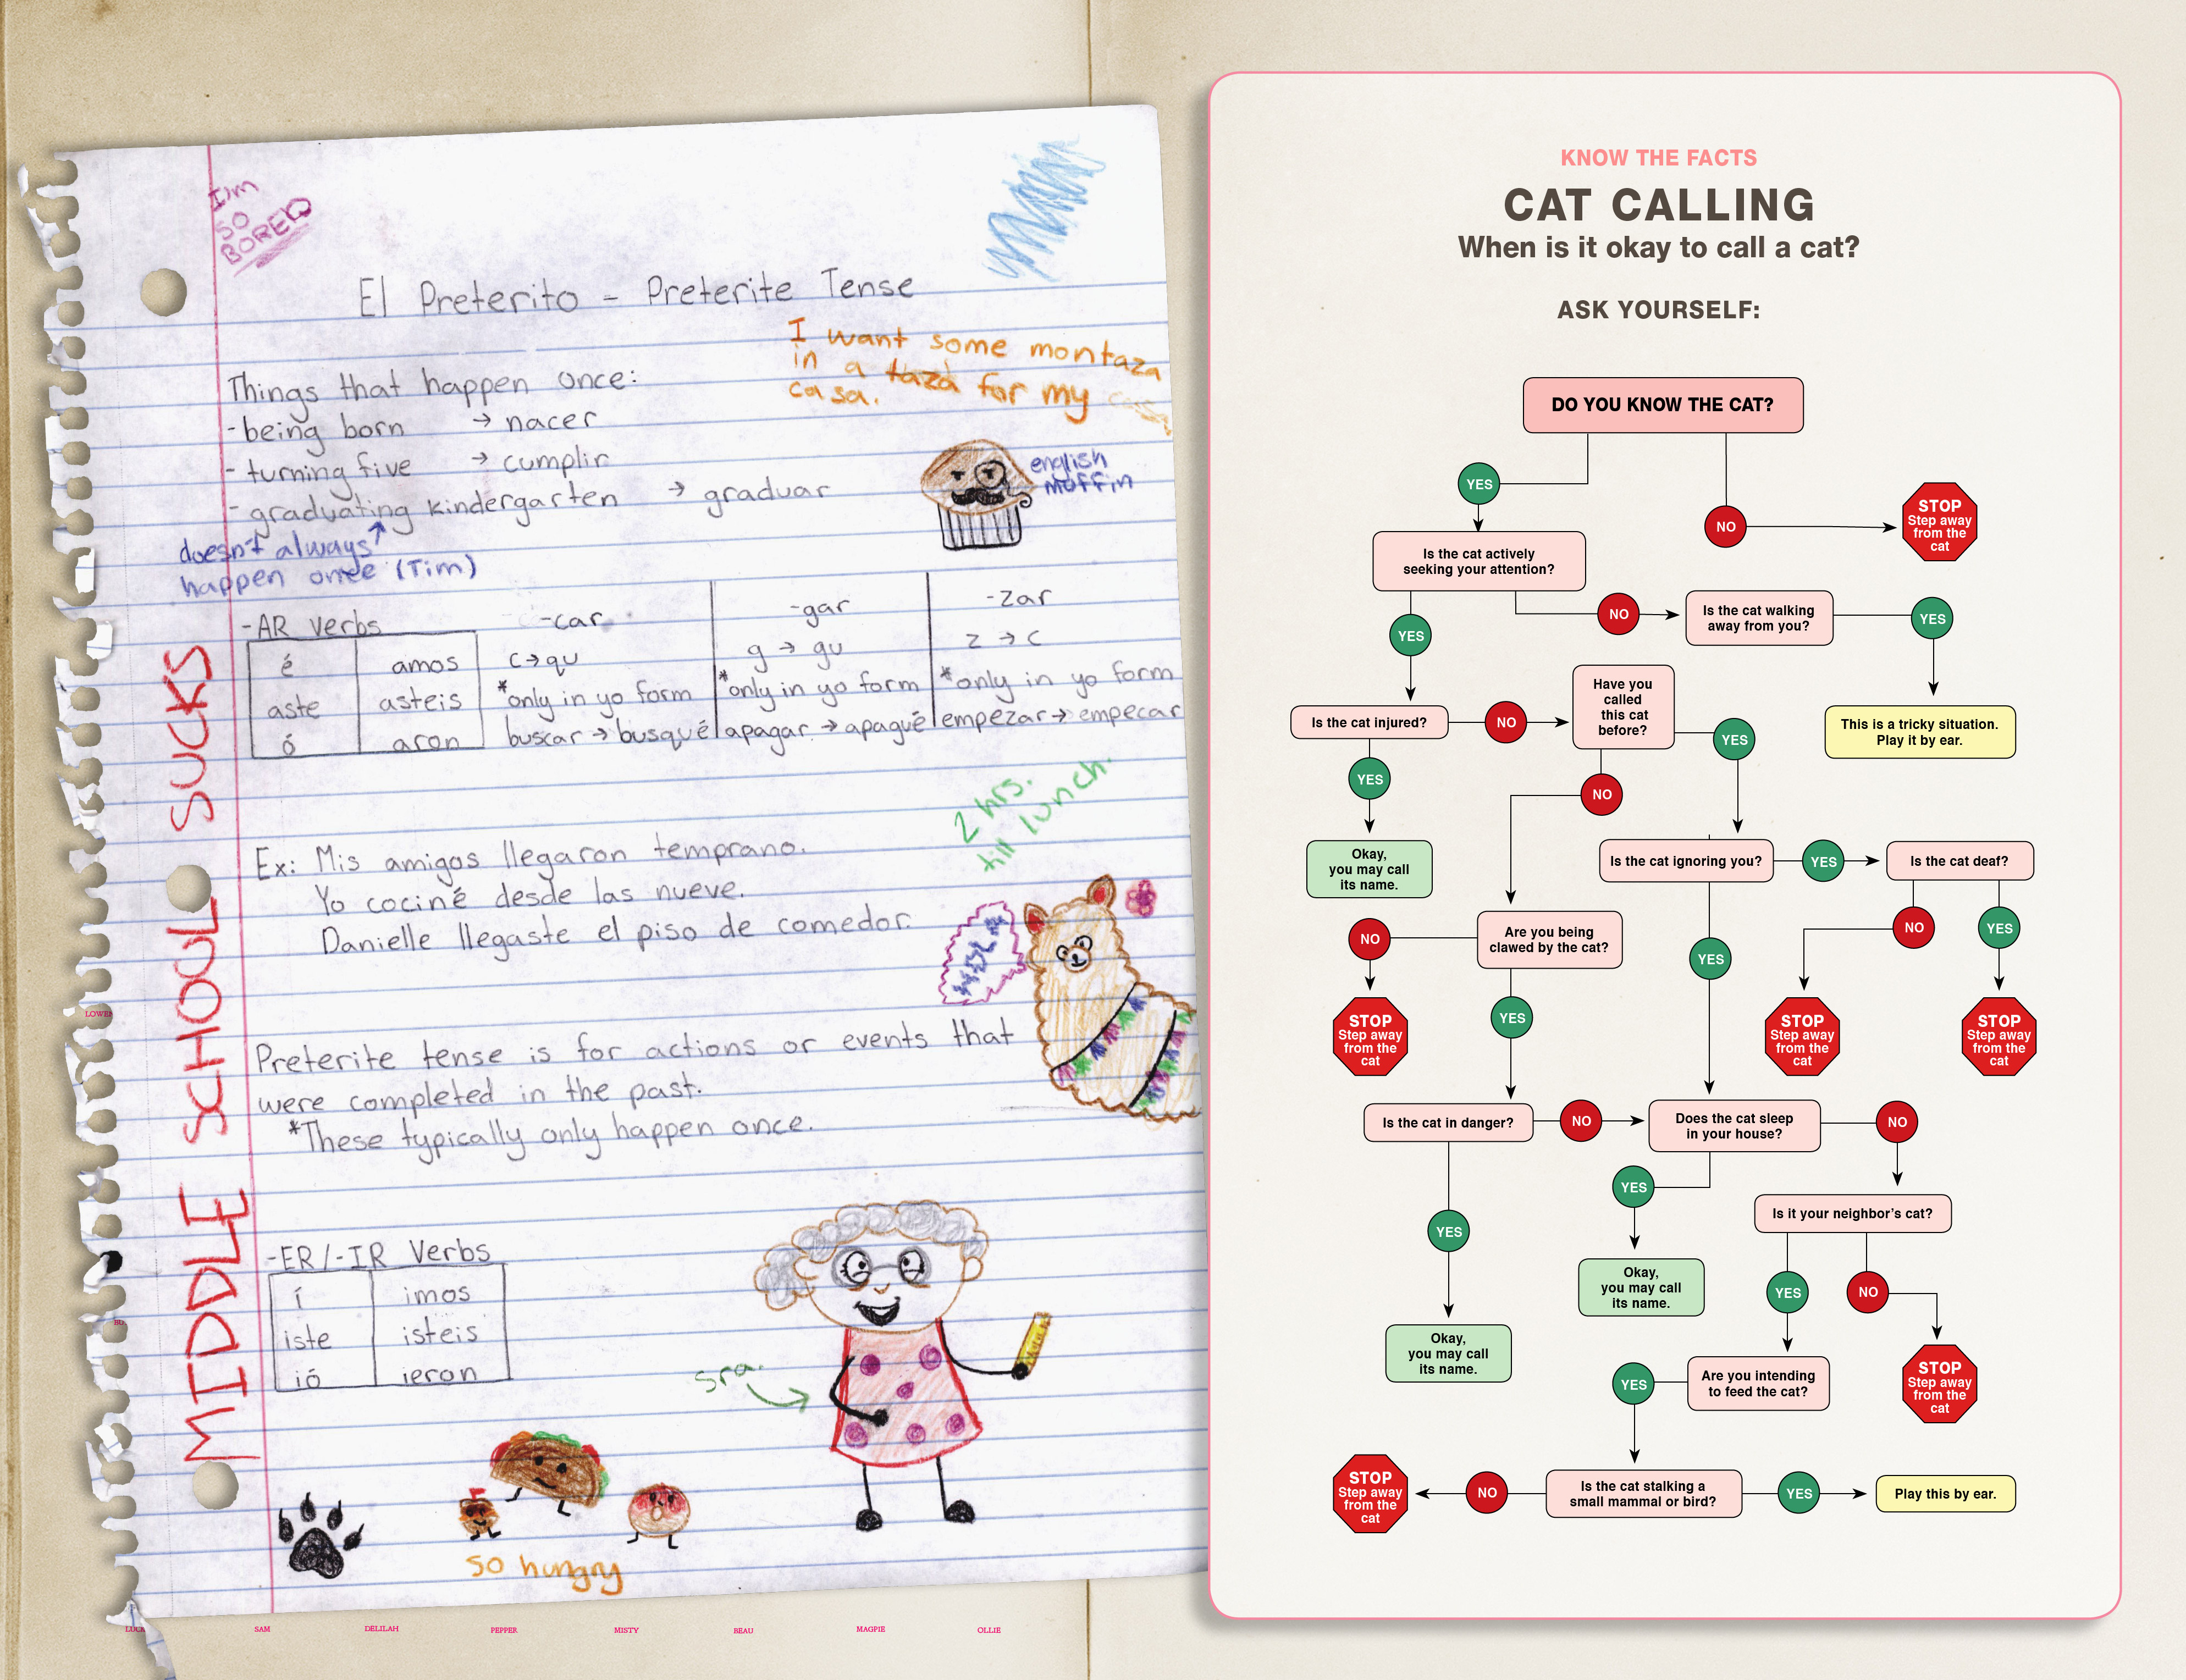 I'm
SO
BORED
El Preterito - Preterite Tense
I want some montaza
in a taza for my casa
casa.
Things that happen once:
-being born → nacer
-turning five → cumplir
-graduating kindergarten → graduar
english
muffin
doesn't always
happen once (Tim)
-AR verbs
é amos
aste asteis
ó aron
-car
c→qu
*only in yo form
buscar → busqué
-gar
g → gu
*only in yo form
apagar → apagué
-zar
z → c
*only in yo form
empezar → empecar
2 hrs.
till lunch.
Ex: Mis amigos llegaron temprano.
Yo cociné desde las nueve.
Danielle llegaste el piso de comedor.
Preterite tense is for actions or events that
were completed in the past.
*These typically only happen once.
-ER/-IR Verbs
í imos
iste isteis
ió ieron
sra.
so hungry
MIDDLE SCHOOL SUCKS
SAM DELILAH PEPPER MISTY BEAU MAGPIE OLLIE
KNOW THE FACTS
CAT CALLING
When is it okay to call a cat?
ASK YOURSELF:
DO YOU KNOW THE CAT?
YES
NO
STOP
Step away
from the
cat
Is the cat actively
seeking your attention?
NO
Is the cat walking
away from you?
YES
YES
This is a tricky situation.
Play it by ear.
Is the cat injured?
NO
Have you
called
this cat
before?
YES
YES
NO
Okay,
you may call
its name.
Is the cat ignoring you?
YES
Is the cat deaf?
NO
YES
STOP
Step away
from the
cat
STOP
Step away
from the
cat
Are you being
clawed by the cat?
NO
STOP
Step away
from the
cat
YES
YES
Is the cat in danger?
NO
Does the cat sleep
in your house?
NO
YES
YES
Okay,
you may call
its name.
Okay,
you may call
its name.
Is it your neighbor's cat?
YES
NO
STOP
Step away
from the
cat
Are you intending
to feed the cat?
YES
Is the cat stalking a
small mammal or bird?
NO
STOP
Step away
from the
cat
YES
Play this by ear.